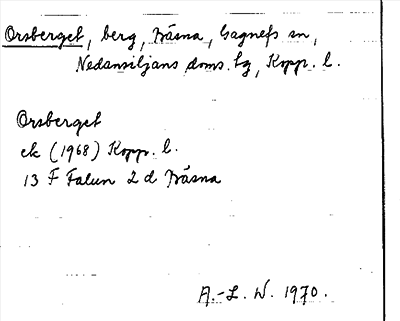 Orsberget, berg, Bäsna, Gagnefs sn,
Nedansiljans doms. hg, Kopp. l.
Orsberget
ek (1968) Kopp. l.
13 F Falun 2 d Bäsna
A.-L. W. 1970.